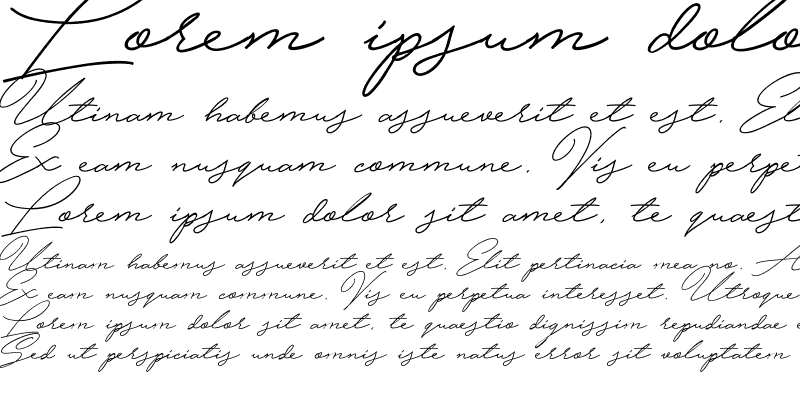 Lorem ipsum dolo
Utinam habemus assueverit et est. El
Ex eam nusquam commune. Vis eu perpe
Lorem ipsum dolor sit amet, te quaest
Utinam habemus assueverit et est. Elit pertinacia mea no. A
Ex eam nusquam commune. Vis eu perpetua interesset. Utroque
Lorem ipsum dolor sit amet, te quaestio dignissim repudiandae e
Sed ut perspiciatis unde omnis iste natus error sit voluptatem